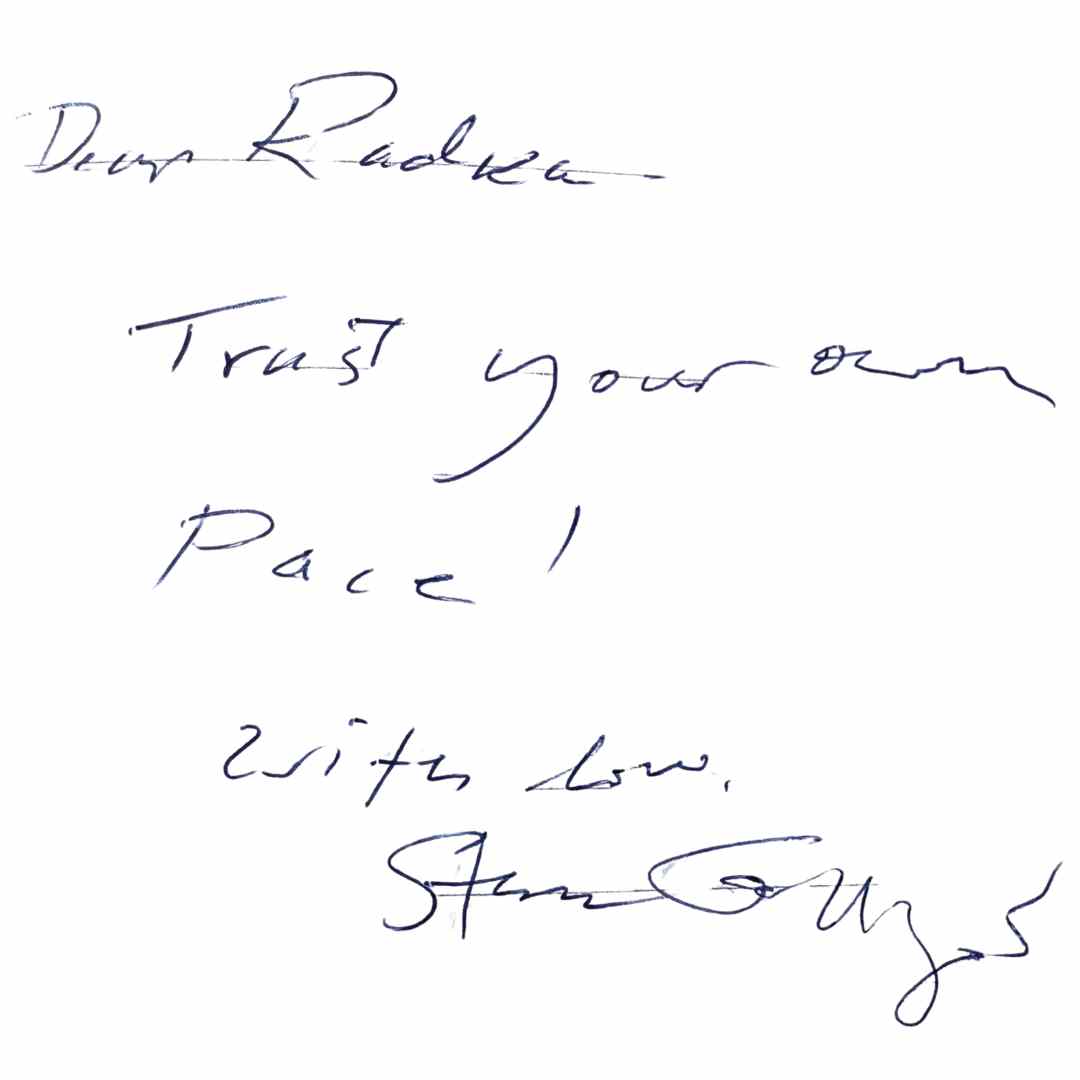 Dear Radka
Trust your own
Pace!
With love,